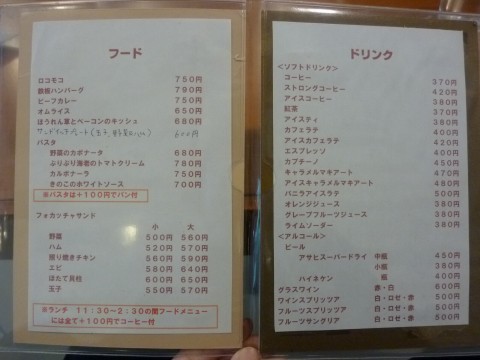 フード
ロコモコ 750円
鉄板ハンバーグ 790円
ビーフカレー 750円
オムライス 650円
ほうれん草とベーコンのキッシュ 680円
サンドイッチプレート(玉子、野菜 600円
パスタ
野菜のカポナータ 680円
ぷりぷり海老のトマトクリーム 780円
カルボナーラ 750円
きのこのホワイトソース 700円
※パスタは+100円でパン付
フォカッチャサンド
小 大
野菜 500円 560円
ハム 520円 570円
照り焼きチキン 560円 590円
エビ 580円 640円
ほたて貝柱 600円 650円
玉子 550円 570円
※ランチ 11:30~2:30の間フードメニュー
には全て+100円でコーヒー付
ドリンク
<ソフトドリンク>
コーヒー 370円
ストロングコーヒー 420円
アイスコーヒー 380円
紅茶 370円
アイスティ 380円
カフェラテ 420円
アイスカフェラテ 420円
エスプレッソ 400円
カプチーノ 450円
キャラメルマキアート 470円
アイスキャラメルマキアート 480円
バニラアイスラテ 500円
オレンジジュース 380円
グレープフルーツジュース 380円
ライムソーダー 380円
<アルコール>
ビール
アサヒスーパードライ 中瓶 450円
小瓶 380円
ハイネケン 瓶 400円
グラスワイン 赤・白 600円
ワインスプリッツア 白・ロゼ・赤 500円
フルーツスプリッツア 白・ロゼ・赤 500円
フルーツサングリア 白・ロゼ・赤 500円